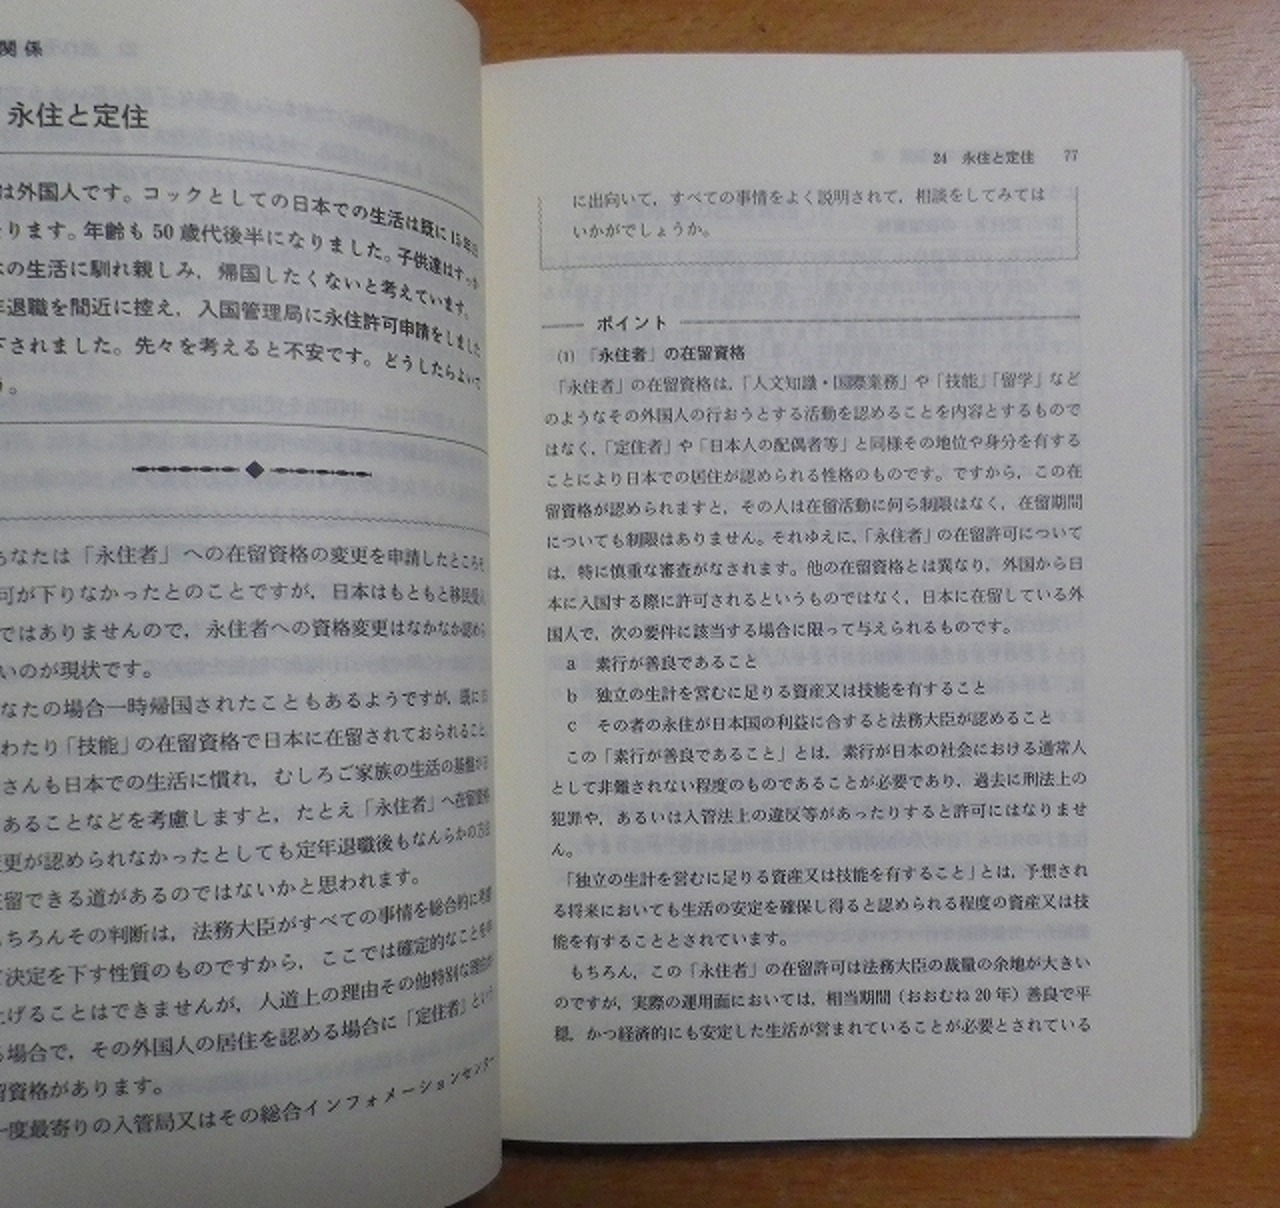 関係
永住と定住
は外国人です。コックとしての日本での生活は既に15年に
ります。年齢も50歳代後半になりました。子供達はすっか
の生活に馴れ親しみ，帰国したくないと考えています。
年退職を間近に控え，入国管理局に永住許可申請をしました
下されました。先々を考えると不安です。どうしたらよいで
う。
あなたは「永住者」への在留資格の変更を申請したところそ
可が下りなかったとのことですが，日本はもともと移民受入
ではありませんので，永住者への資格変更はなかなか認めら
いのが現状です。
なたの場合一時帰国されたこともあるようですが，既に
わたり「技能」の在留資格で日本に在留されておられること，
さんも日本での生活に慣れ，むしろご家族の生活の基盤が
あることなどを考慮しますと，たとえ「永住者」へ在留資格
変更が認められなかったとしても定年退職後もなんらかの方法
在留できる道があるのではないかと思われます。
もちろんその判断は，法務大臣がすべての事情を総合的に考慮
て決定を下す性質のものですから，ここでは確定的なことを申
上げることはできませんが，人道上の理由その他特別な理由が
る場合で，その外国人の居住を認める場合に「定住者」という
留資格があります。
一度最寄りの入管局又はその総合インフォメーションセンター
24 永住と定住 77
に出向いて，すべての事情をよく説明されて，相談をしてみては
いかがでしょうか。
ポイント
(1) 「永住者」の在留資格
「永住者」の在留資格は，「人文知識・国際業務」や「技能」「留学」など
のようなその外国人の行おうとする活動を認めることを内容とするもので
はなく，「定住者」や「日本人の配偶者等」と同様その地位や身分を有する
ことにより日本での居住が認められる性格のものです。ですから，この在
留資格が認められますと，その人は在留活動に何ら制限はなく，在留期間
についても制限はありません。それゆえに，「永住者」の在留許可について
は，特に慎重な審査がなされます。他の在留資格とは異なり，外国から日
本に入国する際に許可されるというものではなく，日本に在留している外
国人で，次の要件に該当する場合に限って与えられるものです。
a 素行が善良であること
b 独立の生計を営むに足りる資産又は技能を有すること
c その者の永住が日本国の利益に合すると法務大臣が認めること
この「素行が善良であること」とは，素行が日本の社会における通常人
として非難されない程度のものであることが必要であり，過去に刑法上の
犯罪や，あるいは入管法上の違反等があったりすると許可にはなりませ
ん。
「独立の生計を営むに足りる資産又は技能を有すること」とは，予想され
る将来においても生活の安定を確保し得ると認められる程度の資産又は技
能を有することとされています。
もちろん，この「永住者」の在留許可は法務大臣の裁量の余地が大きい
のですが，実際の運用面においては，相当期間（おおむね20年）善良で平
穏，かつ経済的にも安定した生活が営まれていることが必要とされている